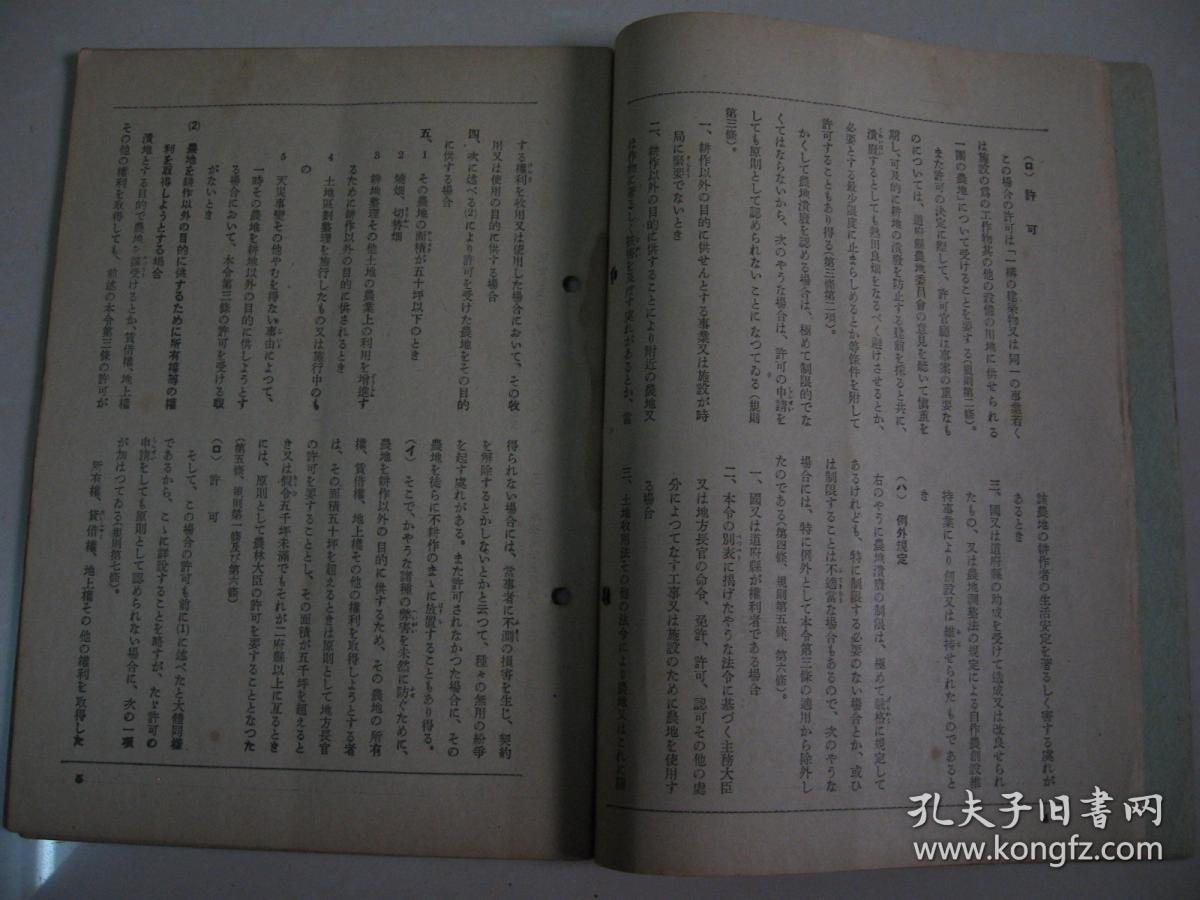 (ロ) 許可
この場合の許可は「一構の建築物又は同一の事業若く
は施設の爲の工作物其の他の設備の用地に供せられる
一團の農地」について受けることを要する(規則第二條)。
また許可の決定に際して、許可官廳は事案の重要なも
のについては、道府縣農地委員會の意見を聽いて愼重を
期し、可及的に耕地の潰廢を防止する建前を採ると共に、
潰廢するとしても熟田良畑をなるべく避けさせるとか、
必要とする最少限度に止まらしめるとか等條件を附して
許可することもあり得る(第三條第二項)。
かくして農地潰廢を認める場合は、極めて制限的でな
くてはならないから、次のやうな場合は、許可の申請を
しても原則として認められないことになつてゐる(規則
第三條)。
一、耕作以外の目的に供せんとする事業又は施設が時
局に緊要でないとき
二、耕作以外の目的に供することにより附近の農地又
は作物に著るしく被害を及ぼす虞れがあるとか、當
該農地の耕作者の生活安定を著るしく害する虞れが
あるとき
三、國又は道府縣の助成を受けて造成又は改良せられ
たもの、又は農地調整法の規定による自作農創設維
持事業により創設又は維持せられたものであると
き
(ハ) 例外規定
右のやうに農地潰廢の制限は、極めて嚴格に規定して
あるけれども、特に制限する必要のない場合とか、或ひ
は制限することは不適當な場合もあるので、次のやうな
場合には、特に例外として本令第三條の適用から除外し
たのである(第四條、規則第五條、第六條)。
一、國又は道府縣が權利者である場合
二、本令の別表に揭げたやうな法令に基づく主務大臣
又は地方長官の命令、免許、許可、認可その他の處
分によつてなす工事又は施設のために農地を使用す
る場合
三、土地收用法その他の法令により農地又はこれに關
する權利を收用又は使用した場合において、その收
用又は使用の目的に供する場合
四、次に述べる(2)により許可を受けた農地をその目的
に供する場合
五、1 その農地の面積が五十坪以下のとき
2 燒畑、切替畑
3 耕地整理その他土地の農業上の利用を增進す
るために耕作以外の目的に供されるとき
4 土地區劃整理を施行したもの又は施行中のも
の
5 天災事變その他やむを得ない事由によつて、
一時その農地を耕地以外の目的に供しようとす
る場合において、本令第三條の許可を受ける暇
がないとき
(2) 農地を耕作以外の目的に供するために所有權等の權
利を取得しようとする場合
潰地とする目的で農地を讓受けるとか、賃借權、地上權
その他の權利を取得しても、前述の本令第三條の許可が
得られない場合には、當事者に不測の損害を生じ、契約
を解除するとかしないとかと云つて、種々の無用の紛爭
を起す虞れがある。また許可されなかつた場合に、その
農地を徒らに不耕作のまゝに放置することもあり得る。
(イ) そこで、かやうな諸種の弊害を未然に防ぐために、
農地を耕作以外の目的に供するため、その農地の所有
權、賃借權、地上權その他の權利を取得しようとする者
は、その面積五十坪を超えるときは原則として地方長官
の許可を要することとし、その面積が五千坪を超えると
き又は假令五千坪未滿でもそれが二府縣以上に亙るとき
には、原則として農林大臣の許可を要することとなつた
(第五條、規則第一條及び第六條)
(ロ) 許可
そして、この場合の許可も前に(1)に述べたと大體同樣
であるから、こゝに詳設することを略すが、たゞ許可の
申請をしても原則として認められない場合に、次の一項
が加はつてゐる(規則第七條)。
所有權、賃借權、地上權その他の權利を取得した
5
孔夫子旧书网
www.kongfz.com